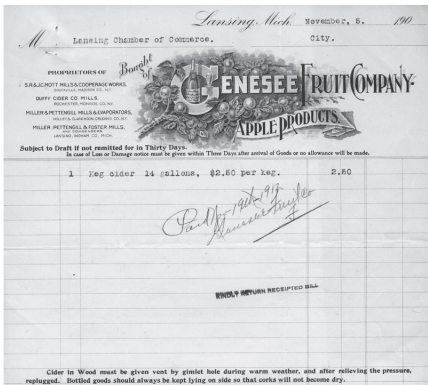 Lansing, Mich. November, 5. 190
M Lansing Chamber of Commerce. City.
Bought of
GENESEE FRUIT COMPANY
APPLE PRODUCTS.
PROPRIETORS OF
S.R.& J.C. MOTT MILLS & COOPERAGE WORKS.
BOUCKVILLE, MADISON CO., N.Y.
DUFFY CIDER CO. MILLS.
ROCHESTER, MONROE, CO. N.Y.
MILLER & PETTENGILL MILLS & EVAPORATORS,
HOLLEY & CLARENDON, ORLEANS CO. N.Y.
MILLER, PETTENGILL & FOSTER MILLS.
LANSING, INGHAM CO. MICH.
Subject to Draft if not remitted for in Thirty Days.
In case of Loss or Damage notice must be given within Three Days after arrival of Goods or no allowance will be made.
1 Keg cider 14 gallons, $2.50 per keg. 2.50
Paid Nov 19th - 1912
Genesee Fruit Co
KINDLY RETURN RECEIPTED BILL
Cider in Wood must be given vent by gimlet hole during warm weather, and after relieving the pressure,
replugged. Bottled goods should always be kept lying on side so that corks will not become dry.